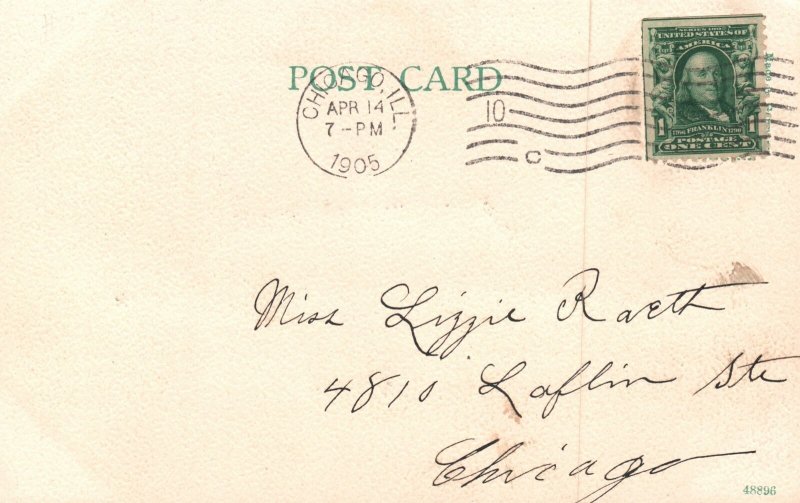 POST CARD
CHICAGO, ILL.
APR 14
7-PM
1905
10
C
SERIES 1902
UNITED STATES OF
AMERICA
1 FRANKLIN 1
POSTAGE
ONE CENT
Miss Lizzie Raeth
4810 Laflin Ste
Chicago
48896